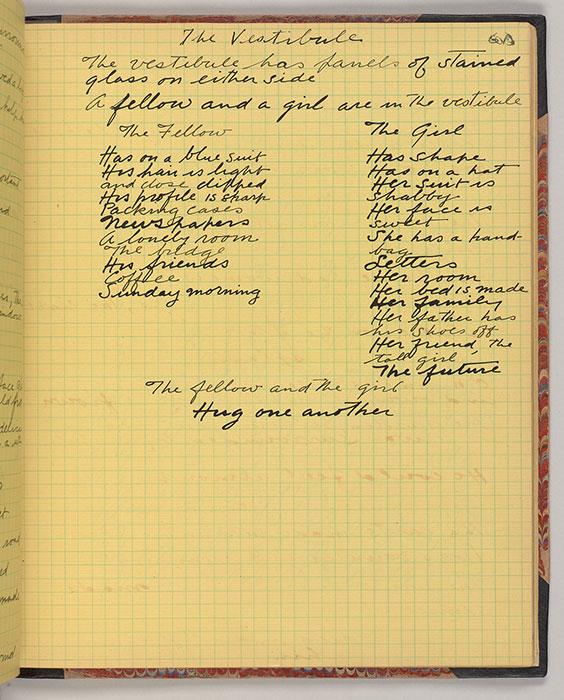 The Vestibule
The vestibule has panels of stained
glass on either side
A fellow and a girl are in the vestibule
The Fellow
Has on a blue suit
His hair is light
and close clipped
His profile is sharp
Packing cases
Newspapers
A lonely room
The bridge
His friends
Coffee
Sunday morning
The Girl
Has shape
Has on a hat
Her suit is
shabby
Her face is
sweet
She has a hand-
bag
Letters
Her room
Her bed is made
Her family
Her father has
his shoes off
Her friend, the
tall girl
The future
The fellow and the girl
Hug one another